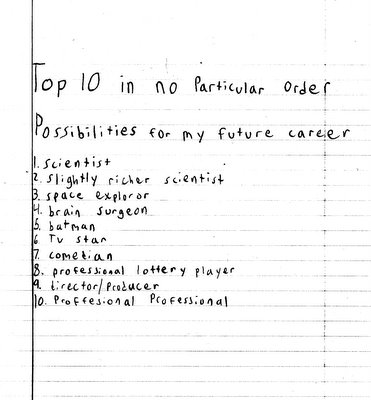 Top 10 in no Particular Order
Possibilities for my future career
1. scientist
2. slightly richer scientist
3. space exploror
4. brain surgeon
5. batman
6 Tv star
7. cometian
8. professional lottery player
9. tirector/Producer
10. Proffesional Professional